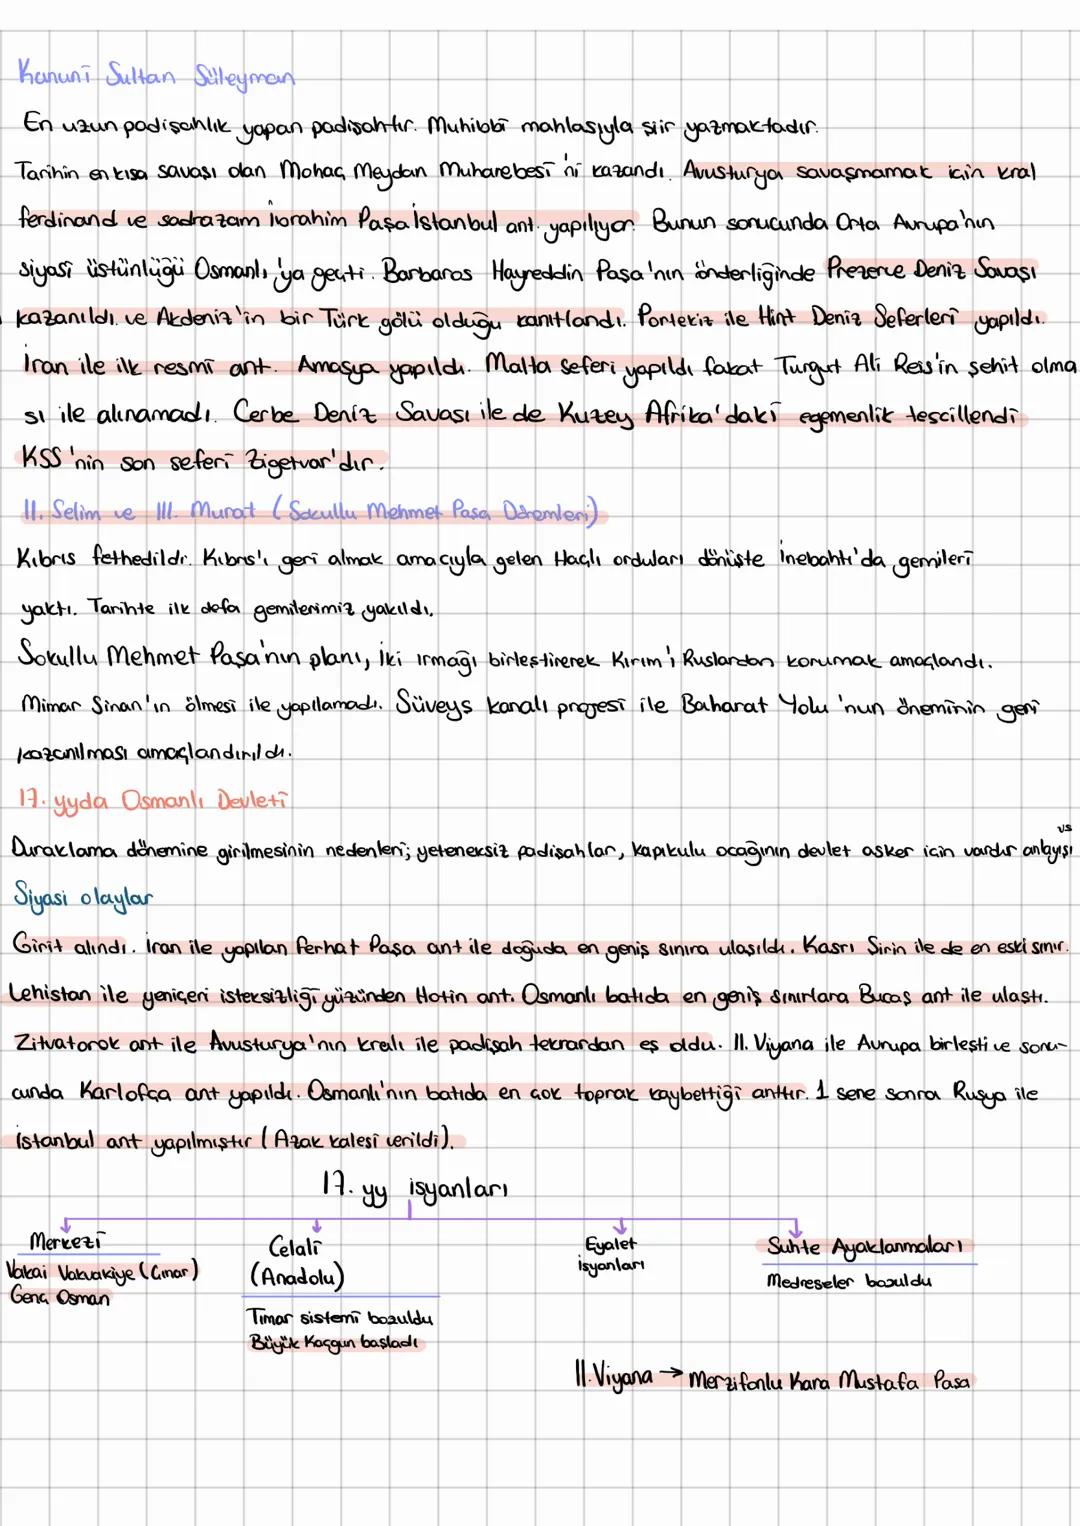 Kanunî Sultan Süleyman
En uzun padişahlık yapan padişahtır. Muhibbî mahlasıyla şiir yazmaktadır.
Tarihin en kısa savaşı olan Mohaç Meydan Muharebesi'ni kazandı. Avusturya savaşmamak için kral
ferdinand ve sadrazam İbrahim Paşa İstanbul ant. yapılıyor. Bunun sonucunda Orta Avrupa'nın
siyasi üstünlüğü Osmanlı'ya geçti. Barbaros Hayreddin Paşa'nın önderliğinde Prezeve Deniz Savaşı
kazanıldı ve Akdeniz'in bir Türk gölü olduğu kanıtlandı. Portekiz ile Hint Deniz Seferleri yapıldı.
İran ile ilk resmî ant. Amasya yapıldı. Malta seferi yapıldı fakat Turgut Ali Reis'in şehit olma
sı ile alınamadı. Cerbe Deniz Savaşı ile de Kuzey Afrika'daki egemenlik tescillendi
KSS'nin son seferi Zigetvar'dır.
II. Selim ve III. Murat (Sokullu Mehmet Paşa Dönemleri)
Kıbrıs fethedildi. Kıbrıs'ı geri almak amacıyla gelen Haçlı orduları dönüşte İnebahtı'da gemileri
yaktı. Tarihte ilk defa gemilerimiz yakıldı.
Sokullu Mehmet Paşa'nın planı, iki ırmağı birleştirerek Kırım'ı Ruslardan korumak amaçlandı.
Mimar Sinan'ın ölmesi ile yapılamadı. Süveyş kanalı projesi ile Baharat Yolu'nun öneminin geri
kazanılması amaçlandırıldı.
17. yyda Osmanlı Devleti
Duraklama dönemine girilmesinin nedenleri; yeteneksiz padişahlar, kapıkulu ocağının devlet asker için vardır anlayışı vs
Siyasi olaylar
Girit alındı. İran ile yapılan Ferhat Paşa ant ile doğuda en geniş sınıra ulaşıldı. Kasrı Şirin ile de en eski sınır.
Lehistan ile yeniçeri isteksizliği yüzünden Hotin ant. Osmanlı batıda en geniş sınırlara Bucaş ant ile ulaştı.
Zitvatorok ant ile Avusturya'nın kralı ile padişah tekrardan eş oldu. II. Viyana ile Avrupa birleşti ve sonu-
cunda Karlofça ant yapıldı. Osmanlı'nın batıda en çok toprak kaybettiği anttır. 1 sene sonra Rusya ile
İstanbul ant yapılmıştır (Azak kalesi verildi).
17. yy isyanları
Merkezî
Vakai Vakvakiye (Çınar)
Genç Osman
Celalî
(Anadolu)
Tımar sistemi bozuldu
Büyük Kaçgun başladı
Eyalet
isyanları
Suhte Ayaklanmaları
Medreseler bozuldu
II. Viyana → Merzifonlu Kara Mustafa Paşa